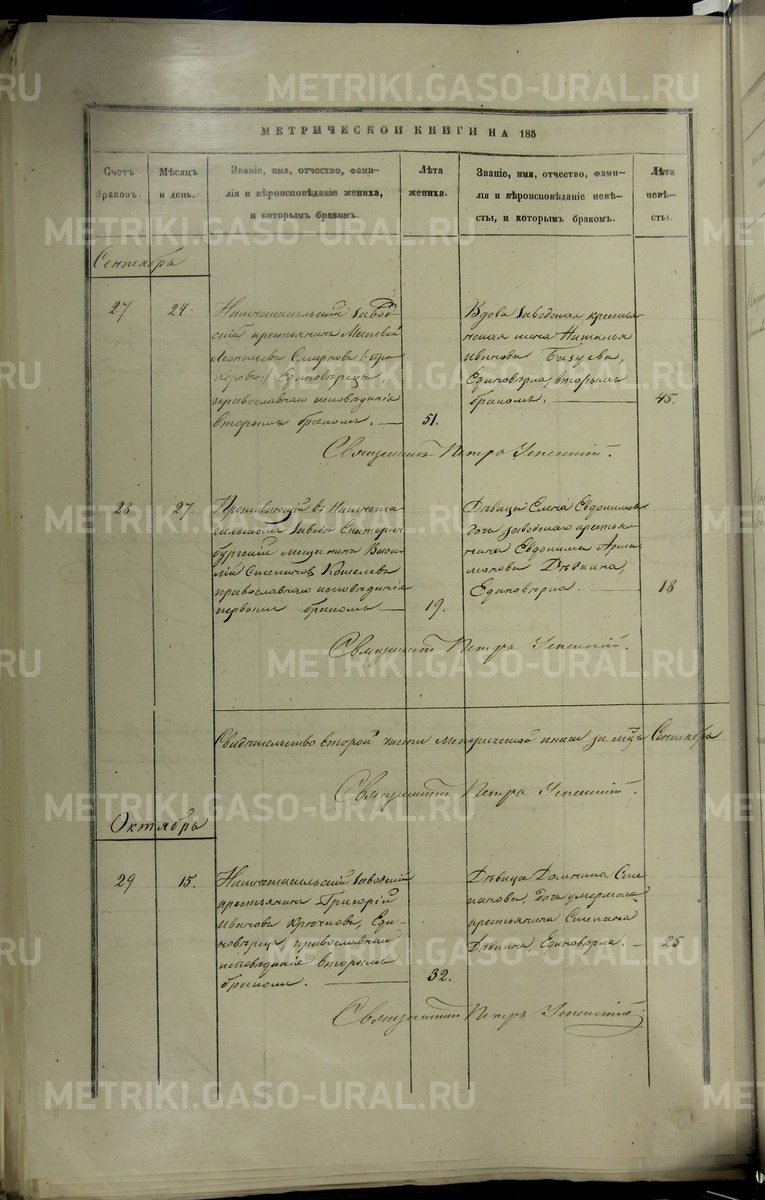 МЕТРИЧЕСКОЙ КНИГИ НА 185
Счетъ браковъ.
Мѣсяцъ и день.
Званіе, имя, отчество, фами-
лія и вѣроисповѣданіе жениха,
и которымъ бракомъ.
Лѣта жениха.
Званіе, имя, отчество, фами-
лія и вѣроисповѣданіе невѣ-
сты, и которымъ бракомъ.
Лѣта невѣ-
сты.
Сентябрь
27
24.
Завод-
скій крестьянинъ Матвей
Леонтьевъ Смирновъ
Единовѣрецъ,
православнаго исповѣданія
вторымъ бракомъ.
51.
Вдова Заводская крестья
нская жена Наталья
Иванова
Единовѣрка, вторымъ
бракомъ.
45.
Священникъ Петръ Успенскій.
28
27.
Проживающій въ
Заводѣ Екатерин
бургскій мещанинъ Васи
лій Степановъ Кошелевъ
православнаго исповѣданія
первымъ бракомъ
19.
Дѣвица Елена Евдокимов
дочь заводскаго крестья
нина Евдокима
Дѣвкина,
Единовѣрка.
18
Священникъ Петръ Успенскій.
Свидѣтельство второй части Метрической книги за мѣць Сентябрь
Священникъ Петръ Успенскій.
Октябрь
29
15.
Заводскій
крестьянинъ Григорій
Ивановъ Крючковъ, Еди-
новѣрецъ, православнаго
исповѣданія вторымъ
бракомъ.
32.
Дѣвица Домнина Сте
панова, дочь умершаго
крестьянина Степана
Дѣвкина, Единовѣрка.
25
Священникъ Петръ Успенскій.
METRIKI.GASO-URAL.RU